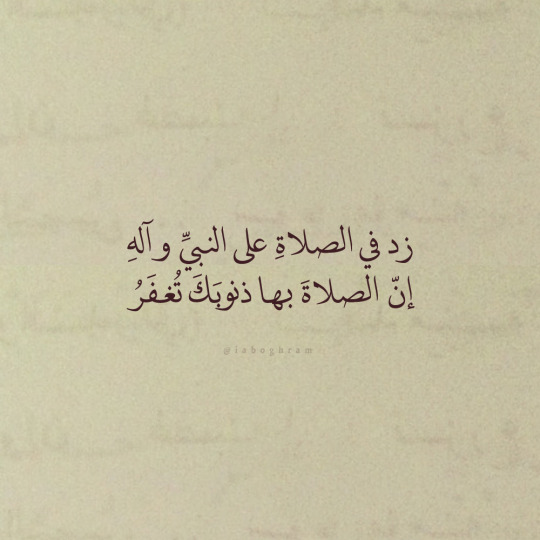 زد في الصلاةِ على النبيِّ و آلهِ
إنّ الصلاةَ بها ذنوبَكَ تُغفَرُ
@iaboghram